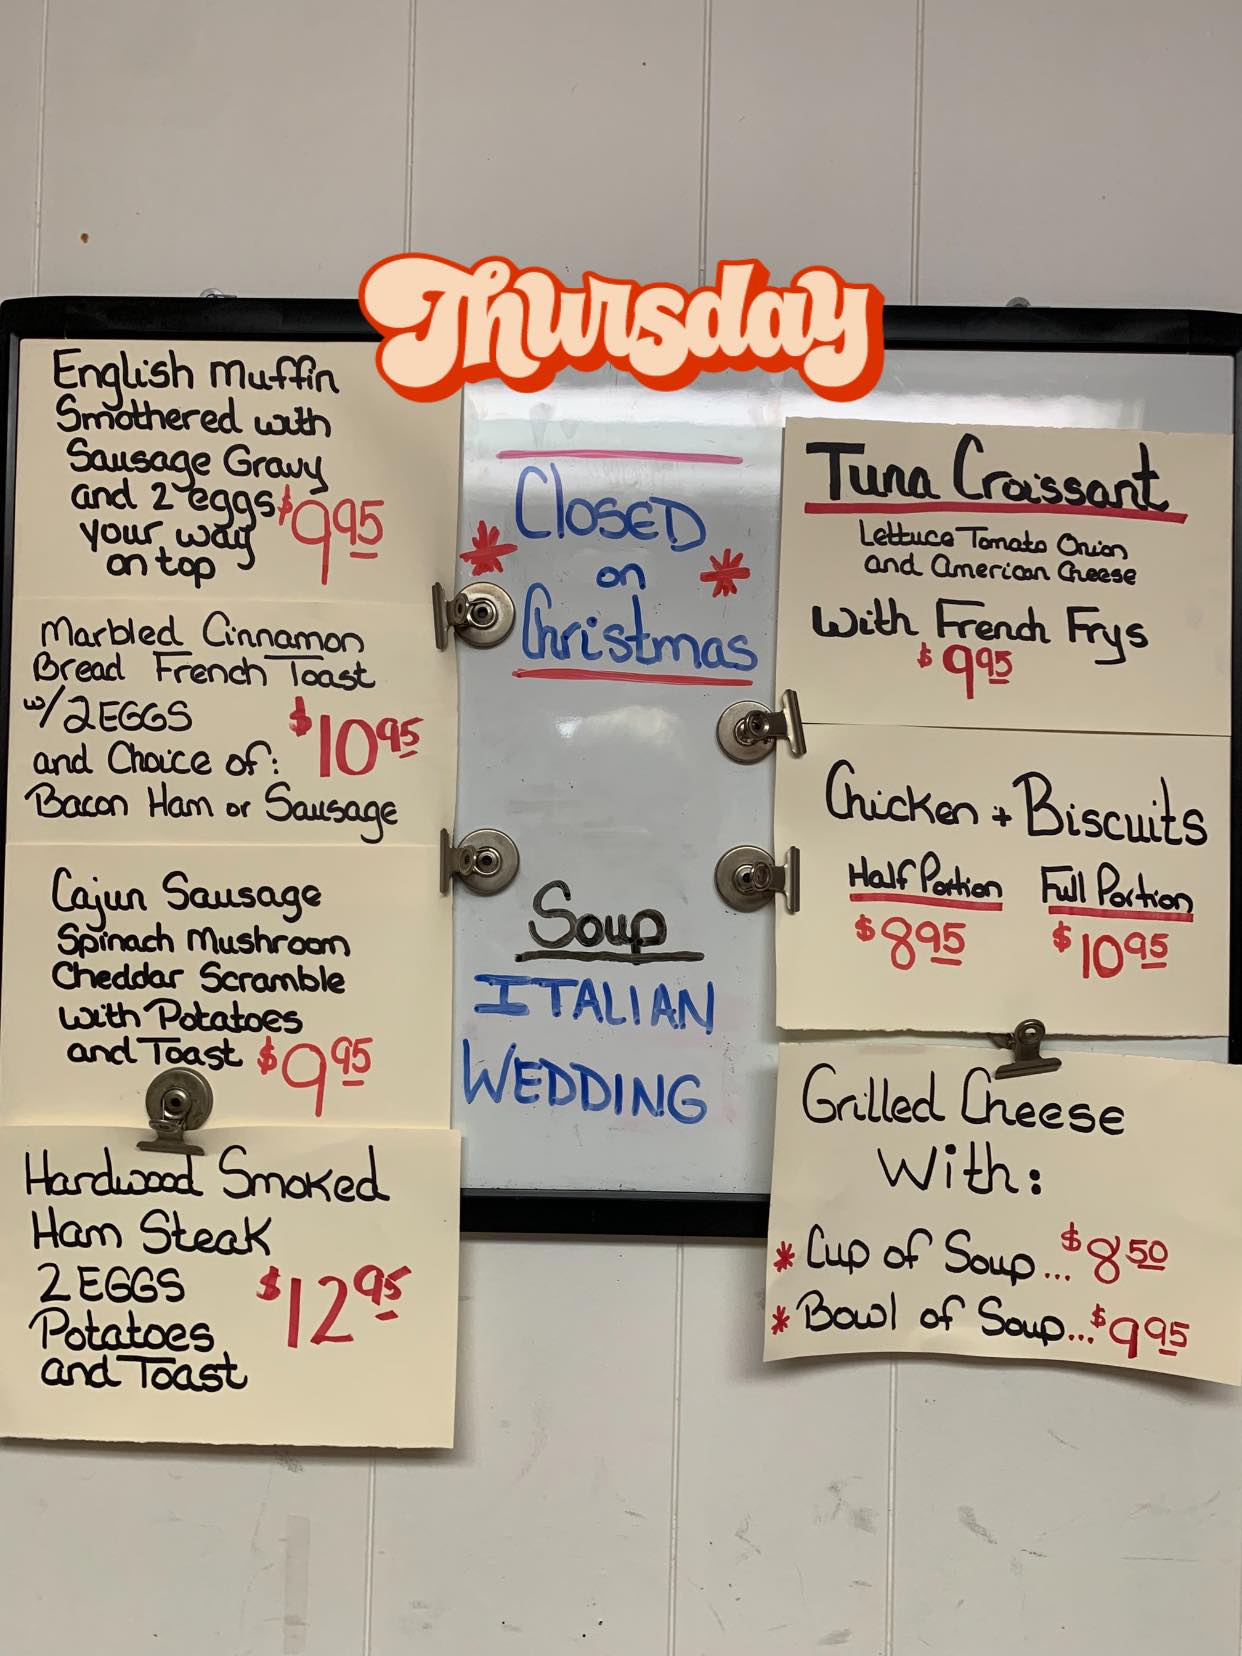 Thursday
English Muffin
Smothered with
Sausage Gravy
and 2 eggs
your way
on top
$9.95
Marbled Cinnamon
Bread French Toast
w/2 EGGS
and Choice of:
$10.95
Bacon Ham or Sausage
Cajun Sausage
Spinach Mushroom
Cheddar Scramble
with Potatoes
and Toast $9.95
Hardwood Smoked
Ham Steak
2 EGGS
$12.95
Potatoes
and Toast
* CLOSED *
on
Christmas
Soup
ITALIAN
WEDDING
Tuna Croissant
Lettuce Tomato Onion
and American Cheese
with French Frys
$9.95
Chicken + Biscuits
Half Portion Full Portion
$8.95 $10.95
Grilled Cheese
With:
* Cup of Soup...$8.50
* Bowl of Soup...$9.95